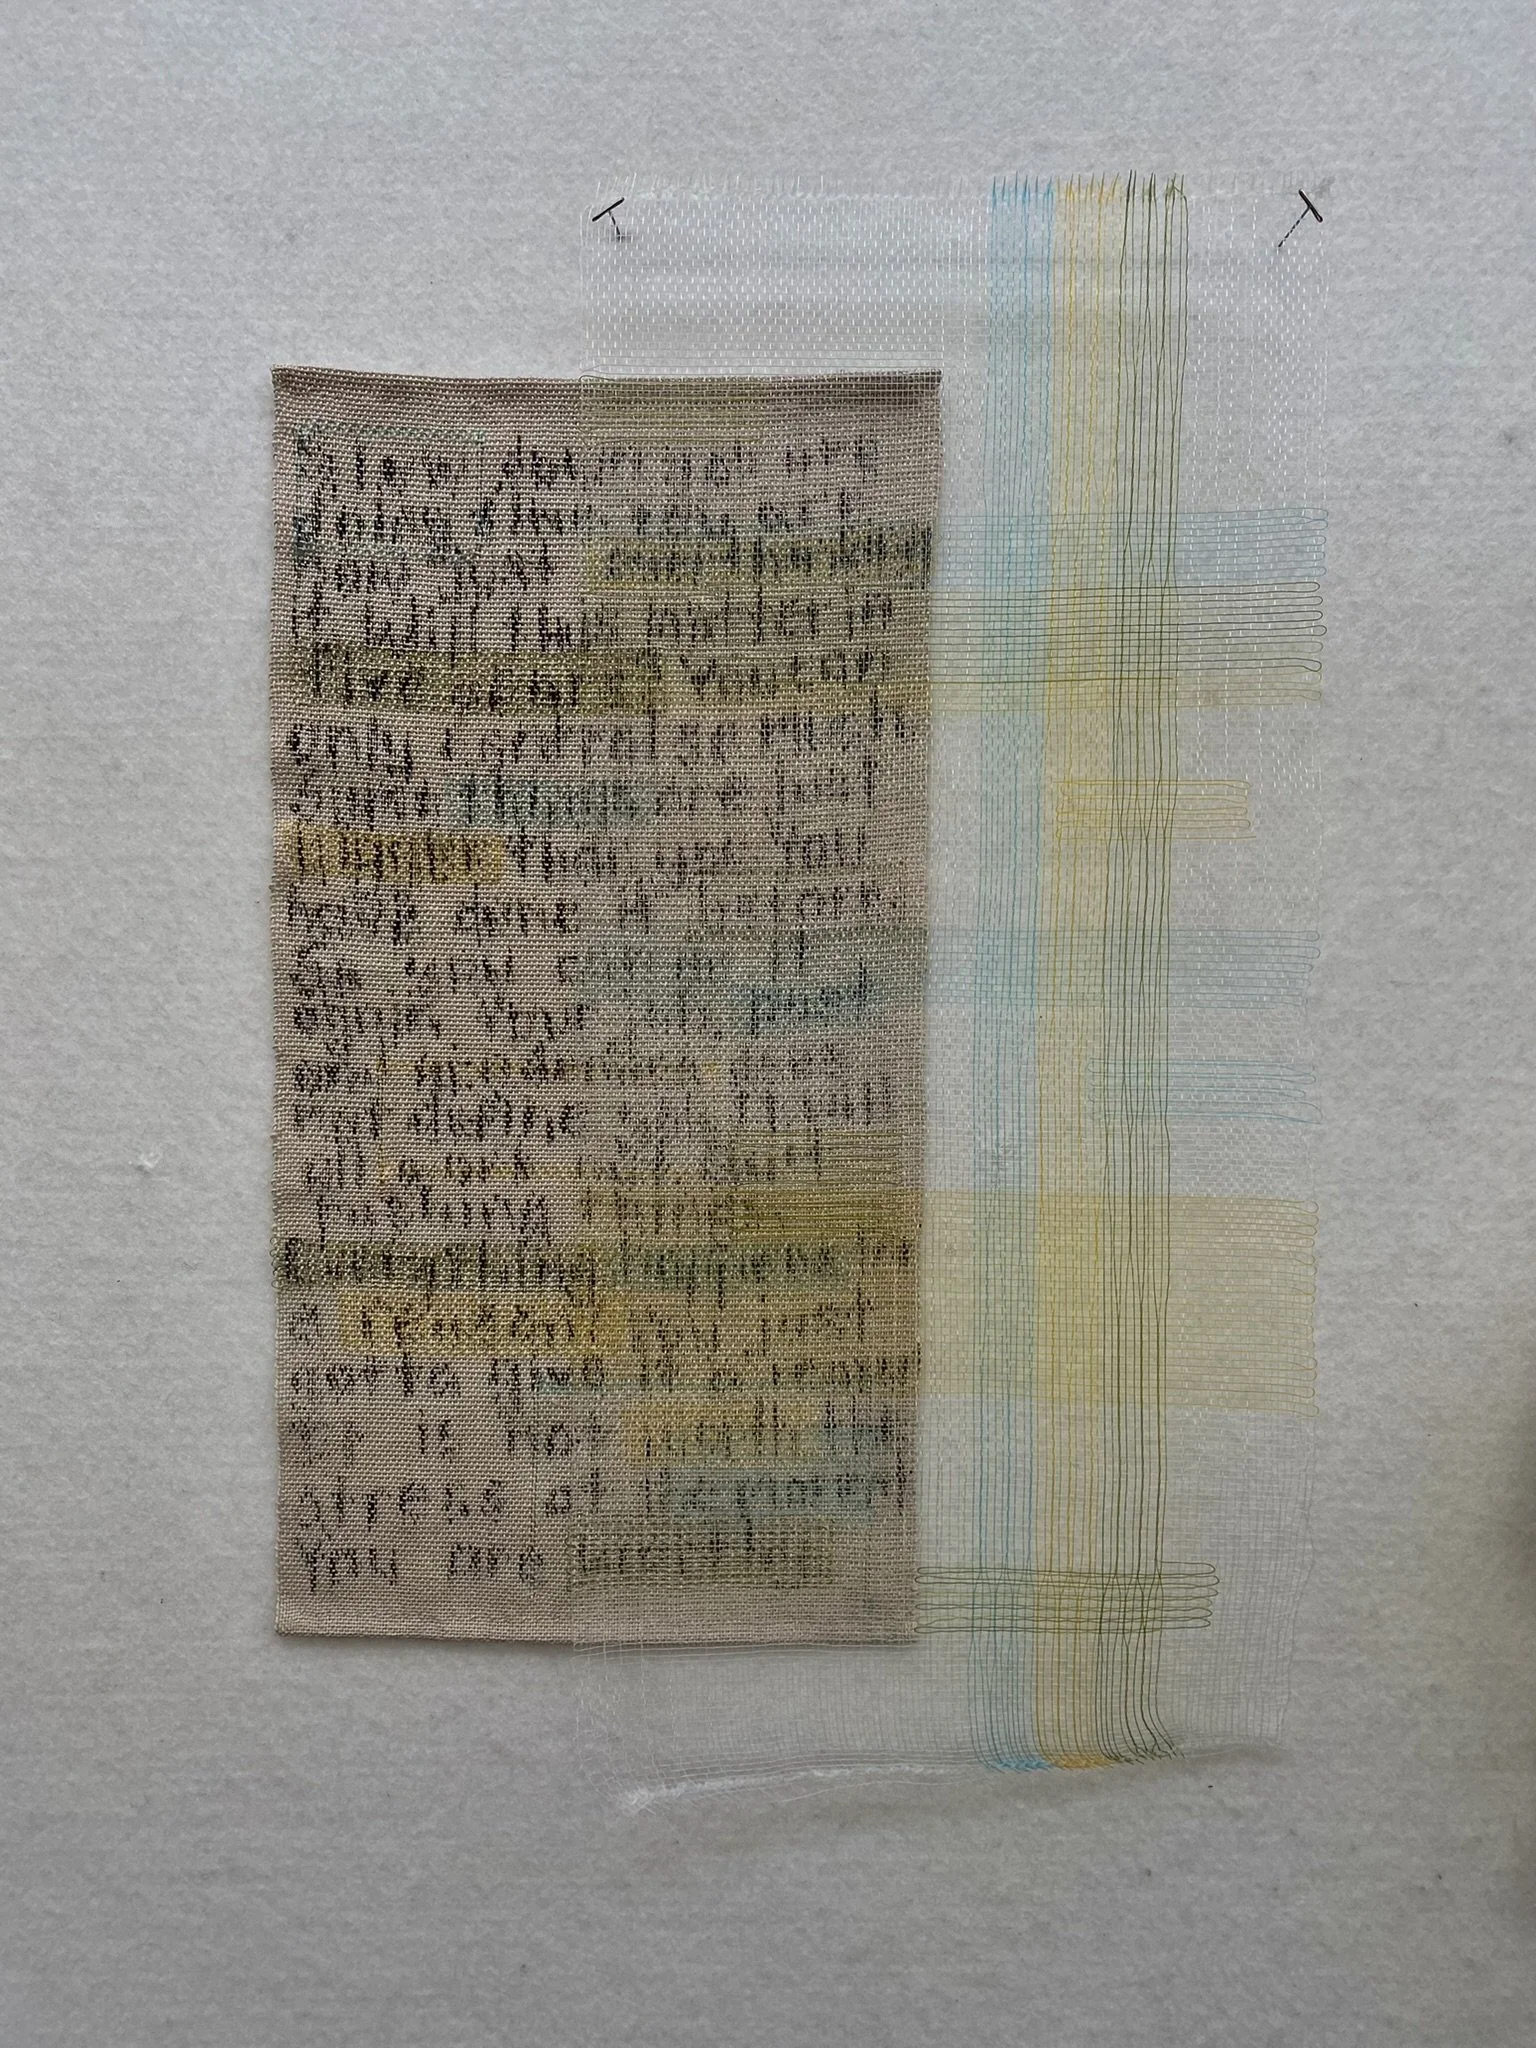 Slow down you are
doing fine You are
now just overthinking
it will this matter in
five years? You can
only control so much.
Some things are just
harder than you
have done it before.
So you can do it
again. Your past
and mistakes does
not define you It will
all work out. Don't
pushing things.
Everything happens for
a reason! You just
gotta give it a reason
It is not worth the
stress of
You are